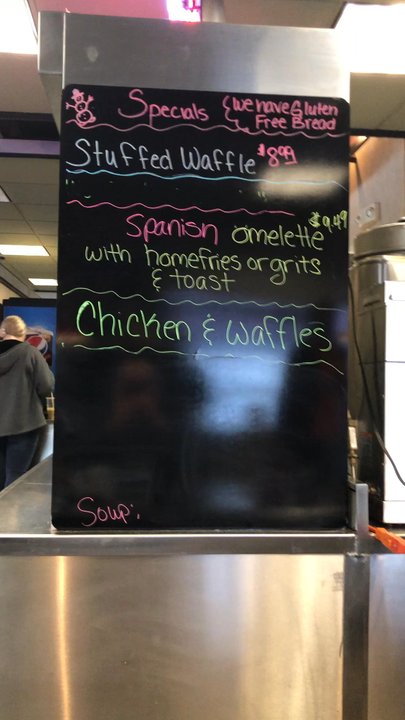 Specials
we have Gluten
Free Bread
Stuffed Waffle $8.99
" "
Spanish omelette $9.49
with homefries or grits
& toast
Chicken & waffles
Soup: